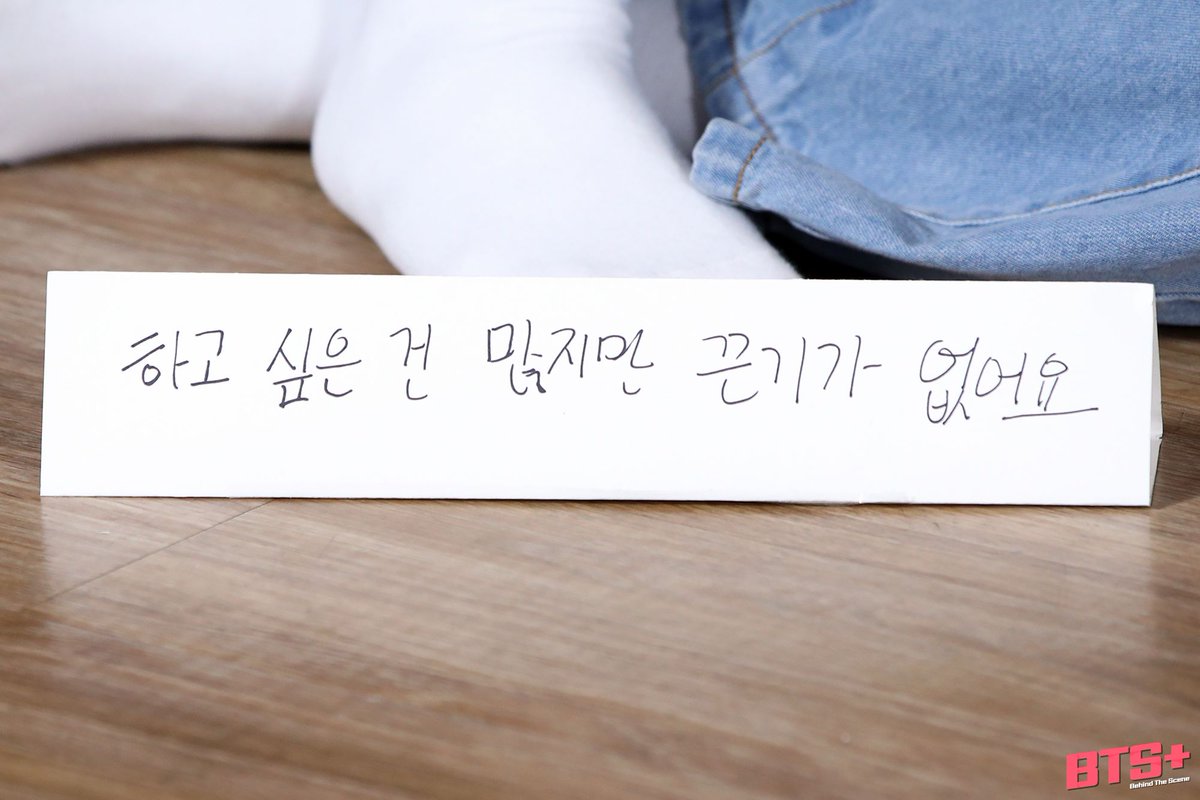 하고 싶은 건 많지만 끈기가 없어요
BTS+
Behind The Scene